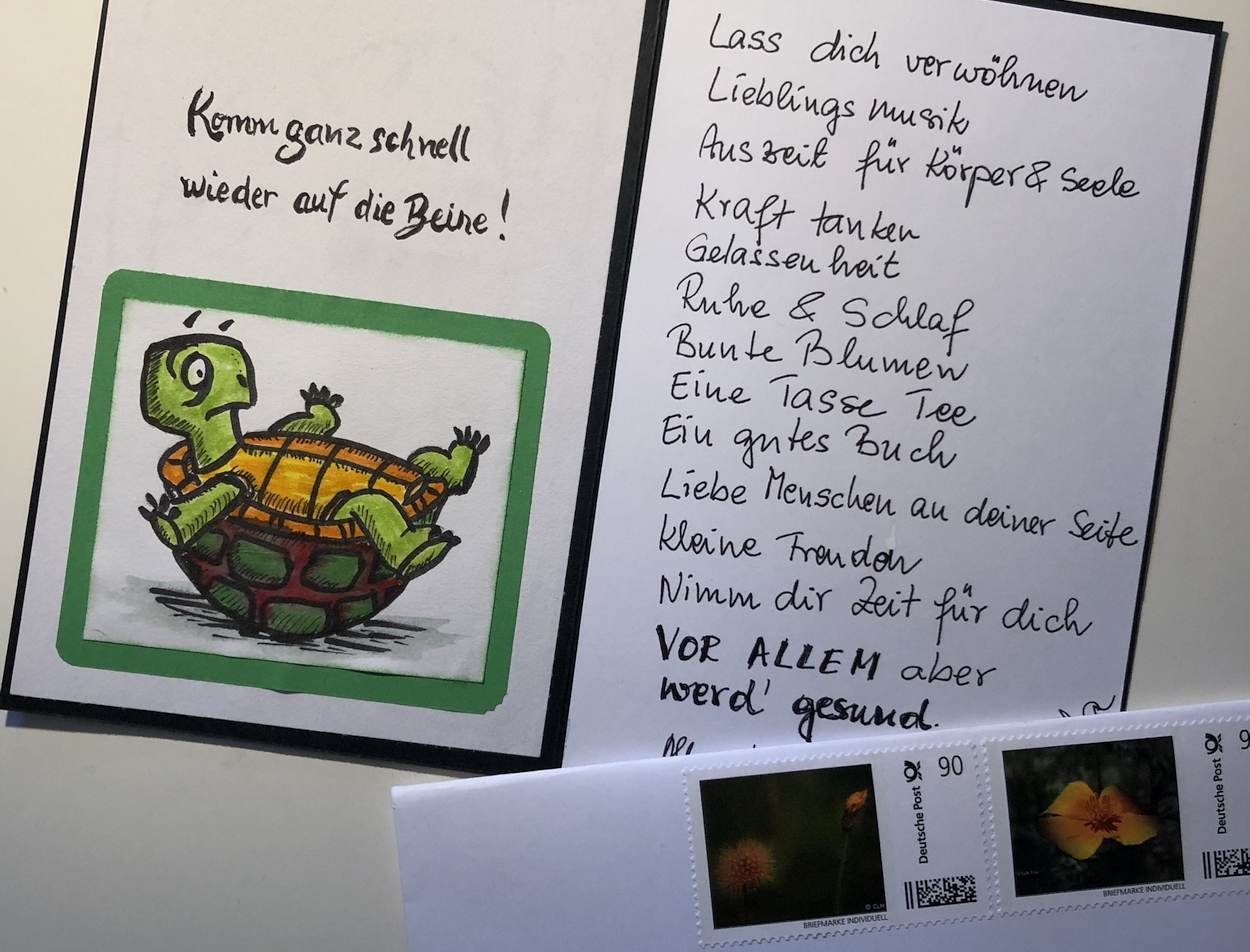 Komm ganz schnell
wieder auf die Beine!
Lass dich verwöhnen
Lieblingsmusik
Auszeit für Körper & Seele
Kraft tanken
Gelassenheit
Ruhe & Schlaf
Bunte Blumen
Eine Tasse Tee
Ein gutes Buch
Liebe Menschen an deiner Seite
Kleine Freuden
Nimm dir Zeit für dich
VOR ALLEM aber
werd' gesund.
Deutsche Post
90
© CLH
BRIEFMARKE INDIVIDUELL
Deutsche Post
9
BRIEFMARKE INDIVIDUELL